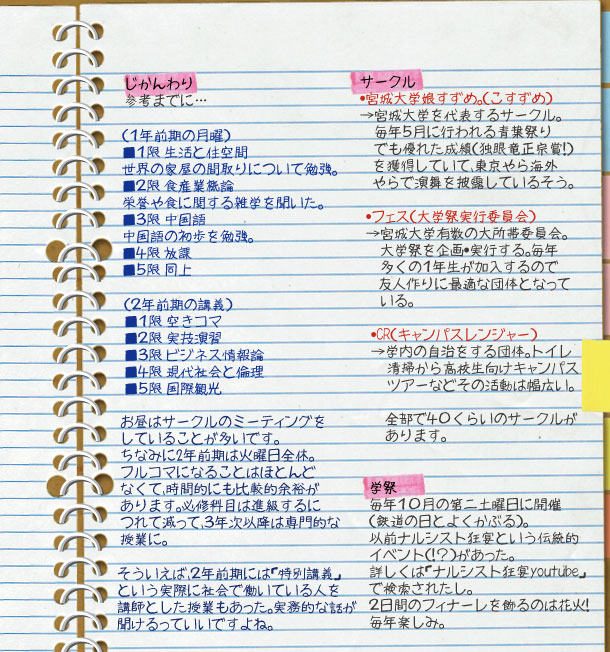 じかんわり
参考までに…
(1年前期の月曜)
■1限 生活と住空間
世界の家屋の間取りについて勉強。
■2限 食産業概論
栄誉や食に関する雑学を聞いた。
■3限 中国語
中国語の初歩を勉強。
■4限 放課
■5限 同上
(2年前期の講義)
■1限 空きコマ
■2限 実技演習
■3限 ビジネス情報論
■4限 現代社会と倫理
■5限 国際観光
お昼はサークルのミーティングを
していることが多いです。
ちなみに2年前期は火曜日全休。
フルコマになることはほとんど
なくて、時間的にも比較的余裕が
あります。必修科目は進級するに
つれて減って、3年次以降は専門的な
授業に。
そういえば、2年前期には『特別講義』
という実際に社会で働いている人を
講師とした授業もあった。実務的な話が
聞けるっていいですよね。
サークル
•宮城大学娘すずめ。(こすずめ)
→宮城大学を代表するサークル。
毎年5月に行われる青葉祭り
でも優れた成績(独眼竜正宗賞!)
を獲得していて、東京やら海外
やらで演舞を披露しているそう。
•フェス(大学祭実行委員会)
→宮城大学有数の大所帯委員会。
大学祭を企画•実行する。毎年
多くの1年生が加入するので
友人作りに最適な団体となって
いる。
•CR(キャンパスレンジャー)
→学内の自治をする団体。トイレ
清掃から高校生向けキャンパス
ツアーなどその活動は幅広い。
全部で40くらいのサークルが
あります。
学祭
毎年10月の第二土曜日に開催
(鉄道の日とよくかぶる)。
以前ナルシスト狂宴という伝統的
イベント(!?)があった。
詳しくは『ナルシスト狂宴youtube』
で検索されたし。
2日間のフィナーレを飾るのは花火!
毎年楽しみ。